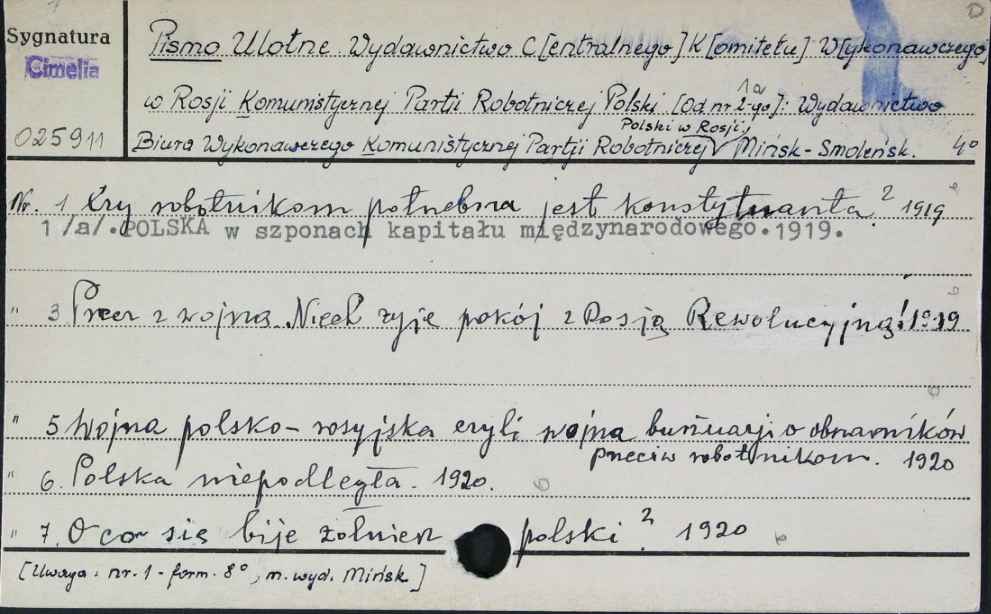 Sygnatura
Cimelia
025911
Pismo Ulotne. Wydawnictwo C[entralnego] K[omitetu] W[ykonawczego]
w Rosji Komunistycznej Partii Robotniczej Polski [Od nr 1a 2-go]: Wydawnictwo
Polski w Rosji,
Biura Wykonawczego Komunistycznej Partji Robotniczej Mińsk - Smoleńsk. 4°
Nr. 1 Czy robotnikom potrzebna jest konstytuanta? 1919
1 /a/. POLSKA w szponach kapitału międzynarodowego. 1919.
" 3 Precz z wojną. Niech żyje pokój z Rosją Rewolucyjną! 1919
" 5 Wojna polsko-rosyjska czyli wojna burżuazji o obszarników
przeciw robotnikom. 1920
" 6. Polska niepodległa. 1920.
" 7. O co się bije żołnierz polski? 1920
[Uwaga: nr. 1 - form. 8°, m. wyd. Mińsk]